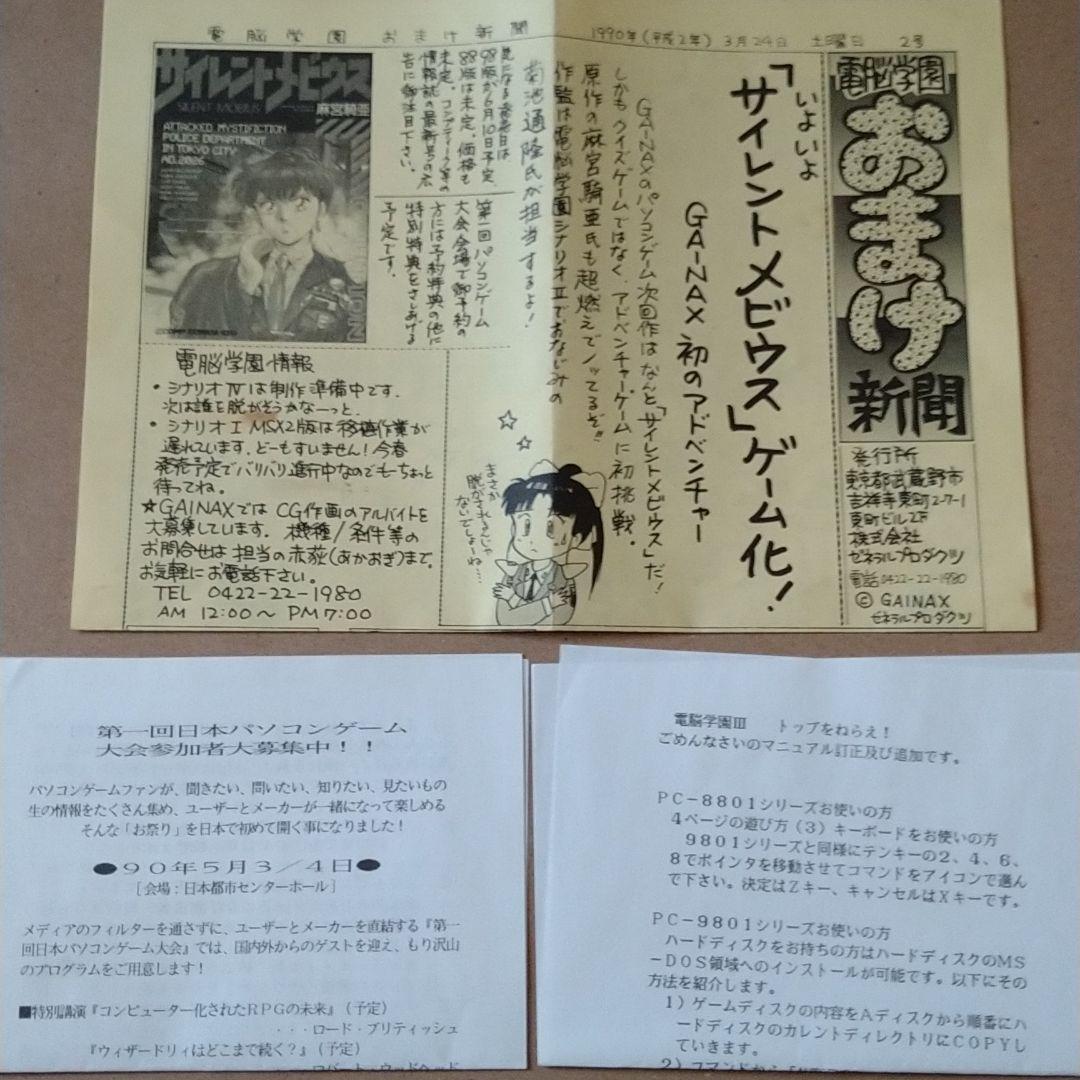 電脳学園 おまけ新聞
1990年(平成2年) 3月24日 土曜日 2号
電脳学園
おまけ
新聞
発行所
東京都武蔵野市
吉祥寺東町2-7-1
東町ビル2F
株式会社
ゼネラルプロダクツ
電話0422-22-1980
© GAINAX
ゼネラルプロダクツ
いよいよ
「サイレントメビウス」ゲーム化!
GAINAX 初のアドベンチャー
GAINAXのパソコンゲーム次回作はなんと「サイレントメビウス」だ!
しかもクイズゲームではなく、アドベンチャーゲームに初挑戦。
原作の麻宮騎亜氏も超燃えでノッてるぞ!!
作監は電脳学園シナリオⅡでおなじみの
菊池通隆氏が担当するよ!
気になる発売日は
98版が6月10日予定、
88版は未定。価格も
未定。コンプティーク等の
情報誌の最新号の広
告に御注目下さい。
第一回パソコンゲーム
大会会場で御予約の
方には予約特典の他に
特別特典をさしあげる
予定です。
サイレントメビウス
SILENT MÖBIUS
麻宮騎亜
ATTACKED MYSTIFICTION
POLICE DEPARTMENT
IN TOKYO CITY
AD.2026
まさか
脱がされるんじゃ
ないでしょーね…
電脳学園情報
・シナリオⅣは制作準備中です。
次は誰を脱がそうかなーっと。
・シナリオⅠ MSX2版は移植作業が
遅れています。どーもすいません!今春
発売予定でバリバリ進行中なのでもーちょっと
待ってね。
☆GAINAXでは CG作画のアルバイトを
大募集しています。機種/条件等の
お問合せは担当の赤荻(あかおぎ)まで。
お気軽にお電話下さい。
TEL 0422-22-1980
AM 12:00〜PM7:00
第一回日本パソコンゲーム
大会参加者大募集中!!
パソコンゲームファンが、聞きたい、問いたい、知りたい、見たいもの
生の情報をたくさん集め、ユーザーとメーカーが一緒になって楽しめる
そんな「お祭り」を日本で初めて開く事になりました!
●90年5月3/4日●
[会場:日本都市センターホール]
メディアのフィルターを通さずに、ユーザーとメーカーを直結する『第一
回日本パソコンゲーム大会』では、国内外からのゲストを迎え、もり沢山
のプログラムをご用意します!
■特別講演『コンピューター化されたRPGの未来』(予定)
・・・ロード・ブリティッシュ
『ウィザードリィはどこまで続く?』(予定)
ロバート・ウッドヘッド
電脳学園Ⅲ トップをねらえ!
ごめんなさいのマニュアル訂正及び追加です。
PC-8801シリーズお使いの方
4ページの遊び方(3)キーボードをお使いの方
9801シリーズと同様にテンキーの2、4、6、
8でポインタを移動させてコマンドをアイコンで選ん
で下さい。決定はZキー、キャンセルはXキーです。
PC-9801シリーズお使いの方
ハードディスクをお持ちの方はハードディスクのMS
-DOS領域へのインストールが可能です。以下にその
方法を紹介します。
1)ゲームディスクの内容をAディスクから順番にハ
ードディスクのカレントディレクトリにCOPYし
ていきます。
2)コマンドから